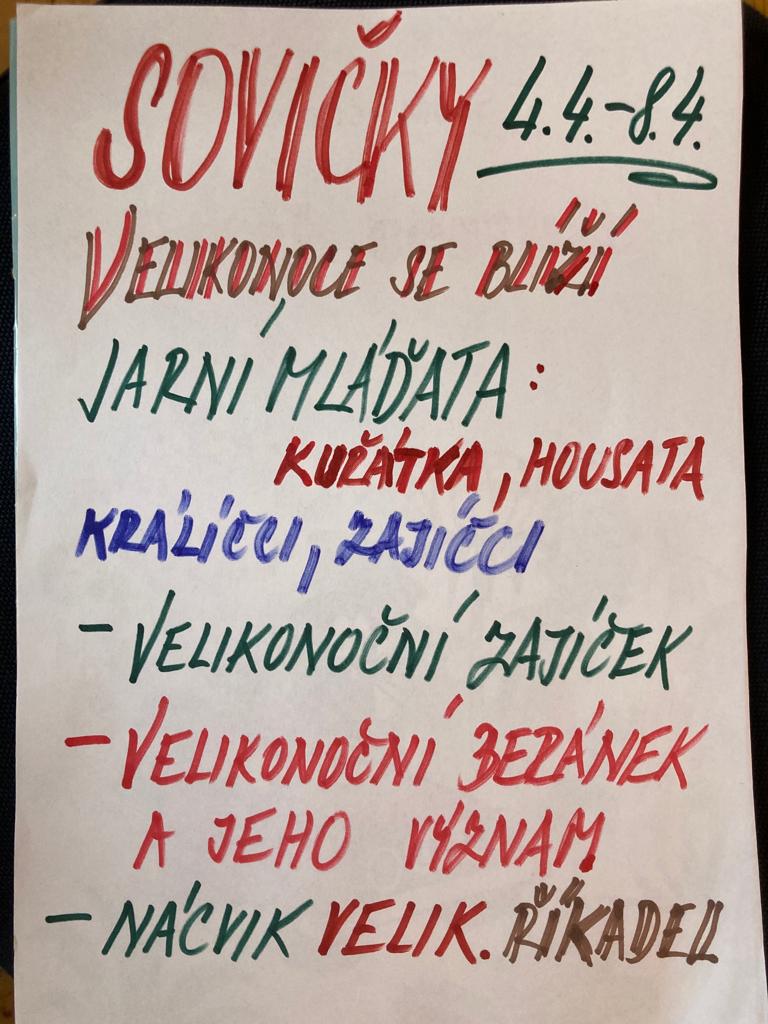 SOVIČKY 4.4.-8.4.
VELIKONOCE SE BLÍŽÍ
JARNÍ MLÁĎATA:
KUŘÁTKA, HOUSATA
KRÁLÍČCI, ZAJÍČCI
- VELIKONOČNÍ ZAJÍČEK
- VELIKONOČNÍ BERÁNEK
A JEHO VÝZNAM
- NÁCVIK VELIK. ŘÍKADEL